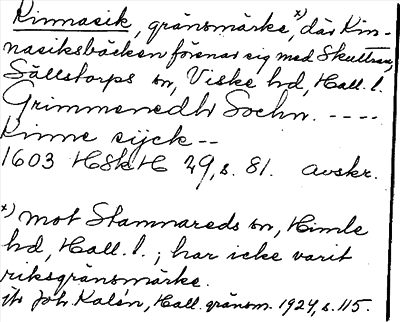 Kinnasik, gränsmärke, x) där Kin-
nasiksbäcken förenar sig med
Sällstorps sn, Viske hd, Hall. l.
Grimmenedh Sochn. ----
Kinne sijck --
1603 HSkH 29, s. 81. avskr.
x) mot Stamnareds sn, Himle
hd, Hall. l.; har icke varit
riksgränsmärke.
jfr Joh. Kalén, Hall. gränsm. 1924, s. 115.